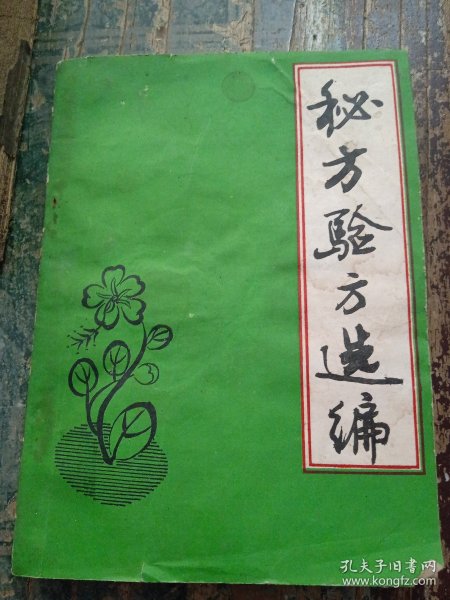 秘方验方选编
孔夫子旧书网
www.kongfz.com